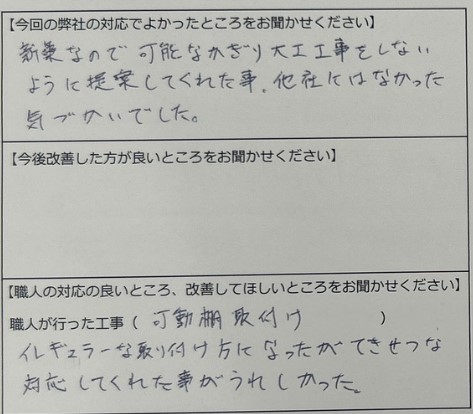 【今回の弊社の対応でよかったところをお聞かせください】
新築なので可能なかぎり大工工事をしない
ように提案してくれた事、他社にはなかった
気づかいでした。
【今後改善した方が良いところをお聞かせください】
【職人の対応の良いところ、改善してほしいところをお聞かせください】
職人が行った工事（ 可動棚取付け ）
イレギュラーな取り付け方になったがてきせつな
対応してくれた事がうれしかった。